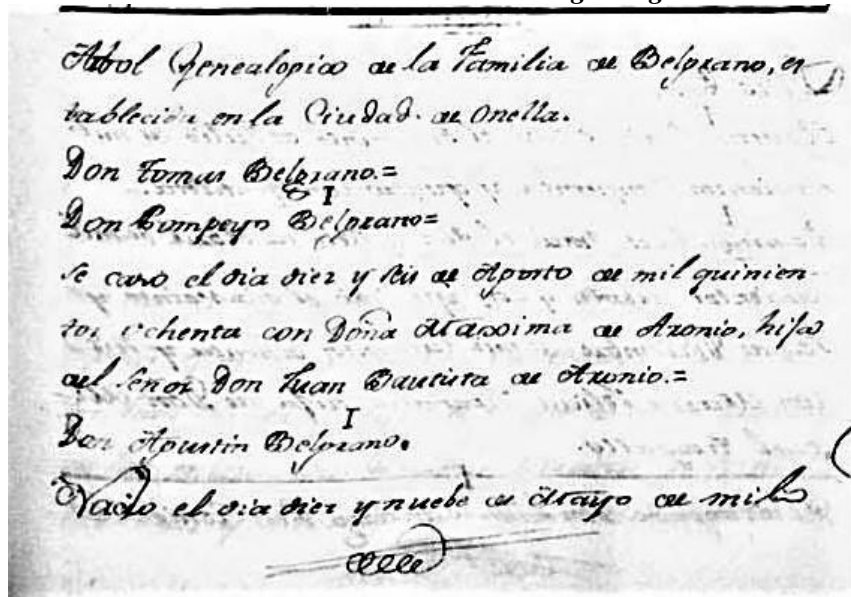 Arbol Genealogico de la Familia de Belgrano, es
tablecida en la Ciudad de Onella.
Don Tomas Belgrano.=
I
Don Pompeyo Belgrano=
Se caso el dia diez y seis de Agosto de mil quinien
tos ochenta con Doña Maxima de Aronio, hija
del Señor Don Juan Bautista de Aronio.=
I
Don Agustin Belgrano.
Nacio el dia diez y nuebe de Mayo de mil